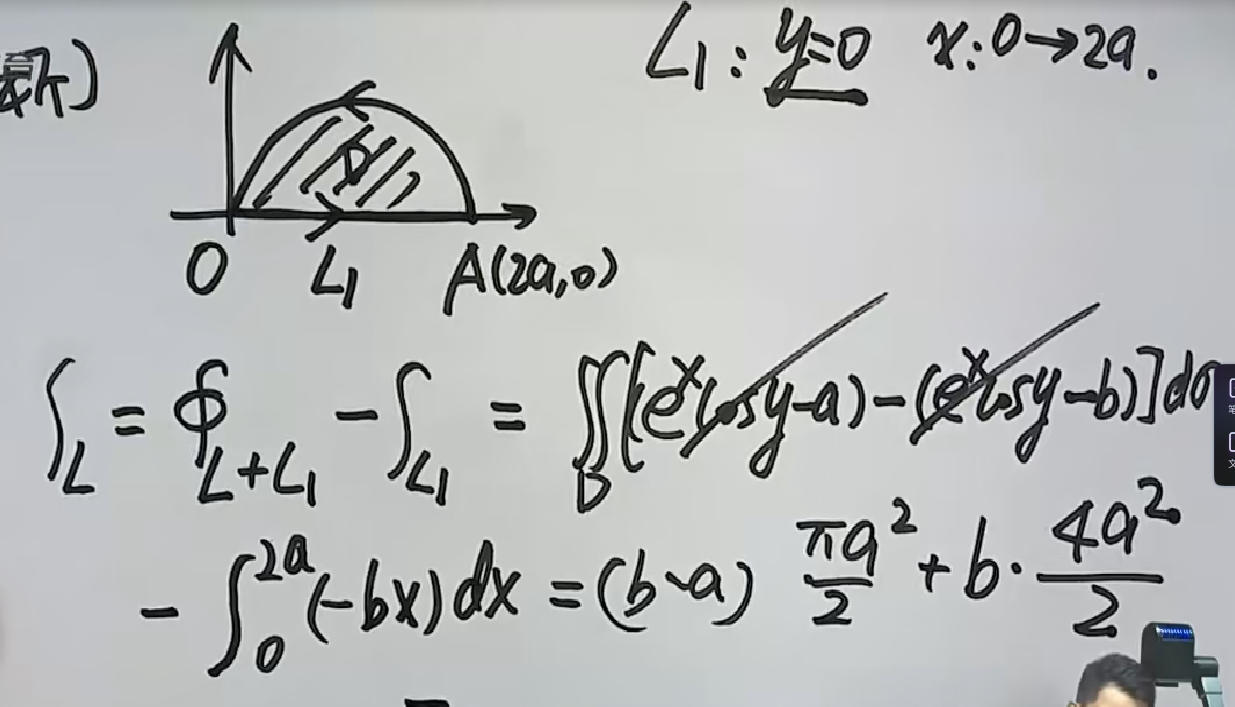 L₁: y=0  x: 0→2a.
D
O  L₁  A(2a,0)
∫_L = ∮_{L+L₁} − ∫_{L₁} = ∬_D [(eˣcosy−a)−(eˣcosy−b)]dσ
− ∫₀^{2a} (−bx)dx = (b−a) πa²/2 + b· 4a²/2